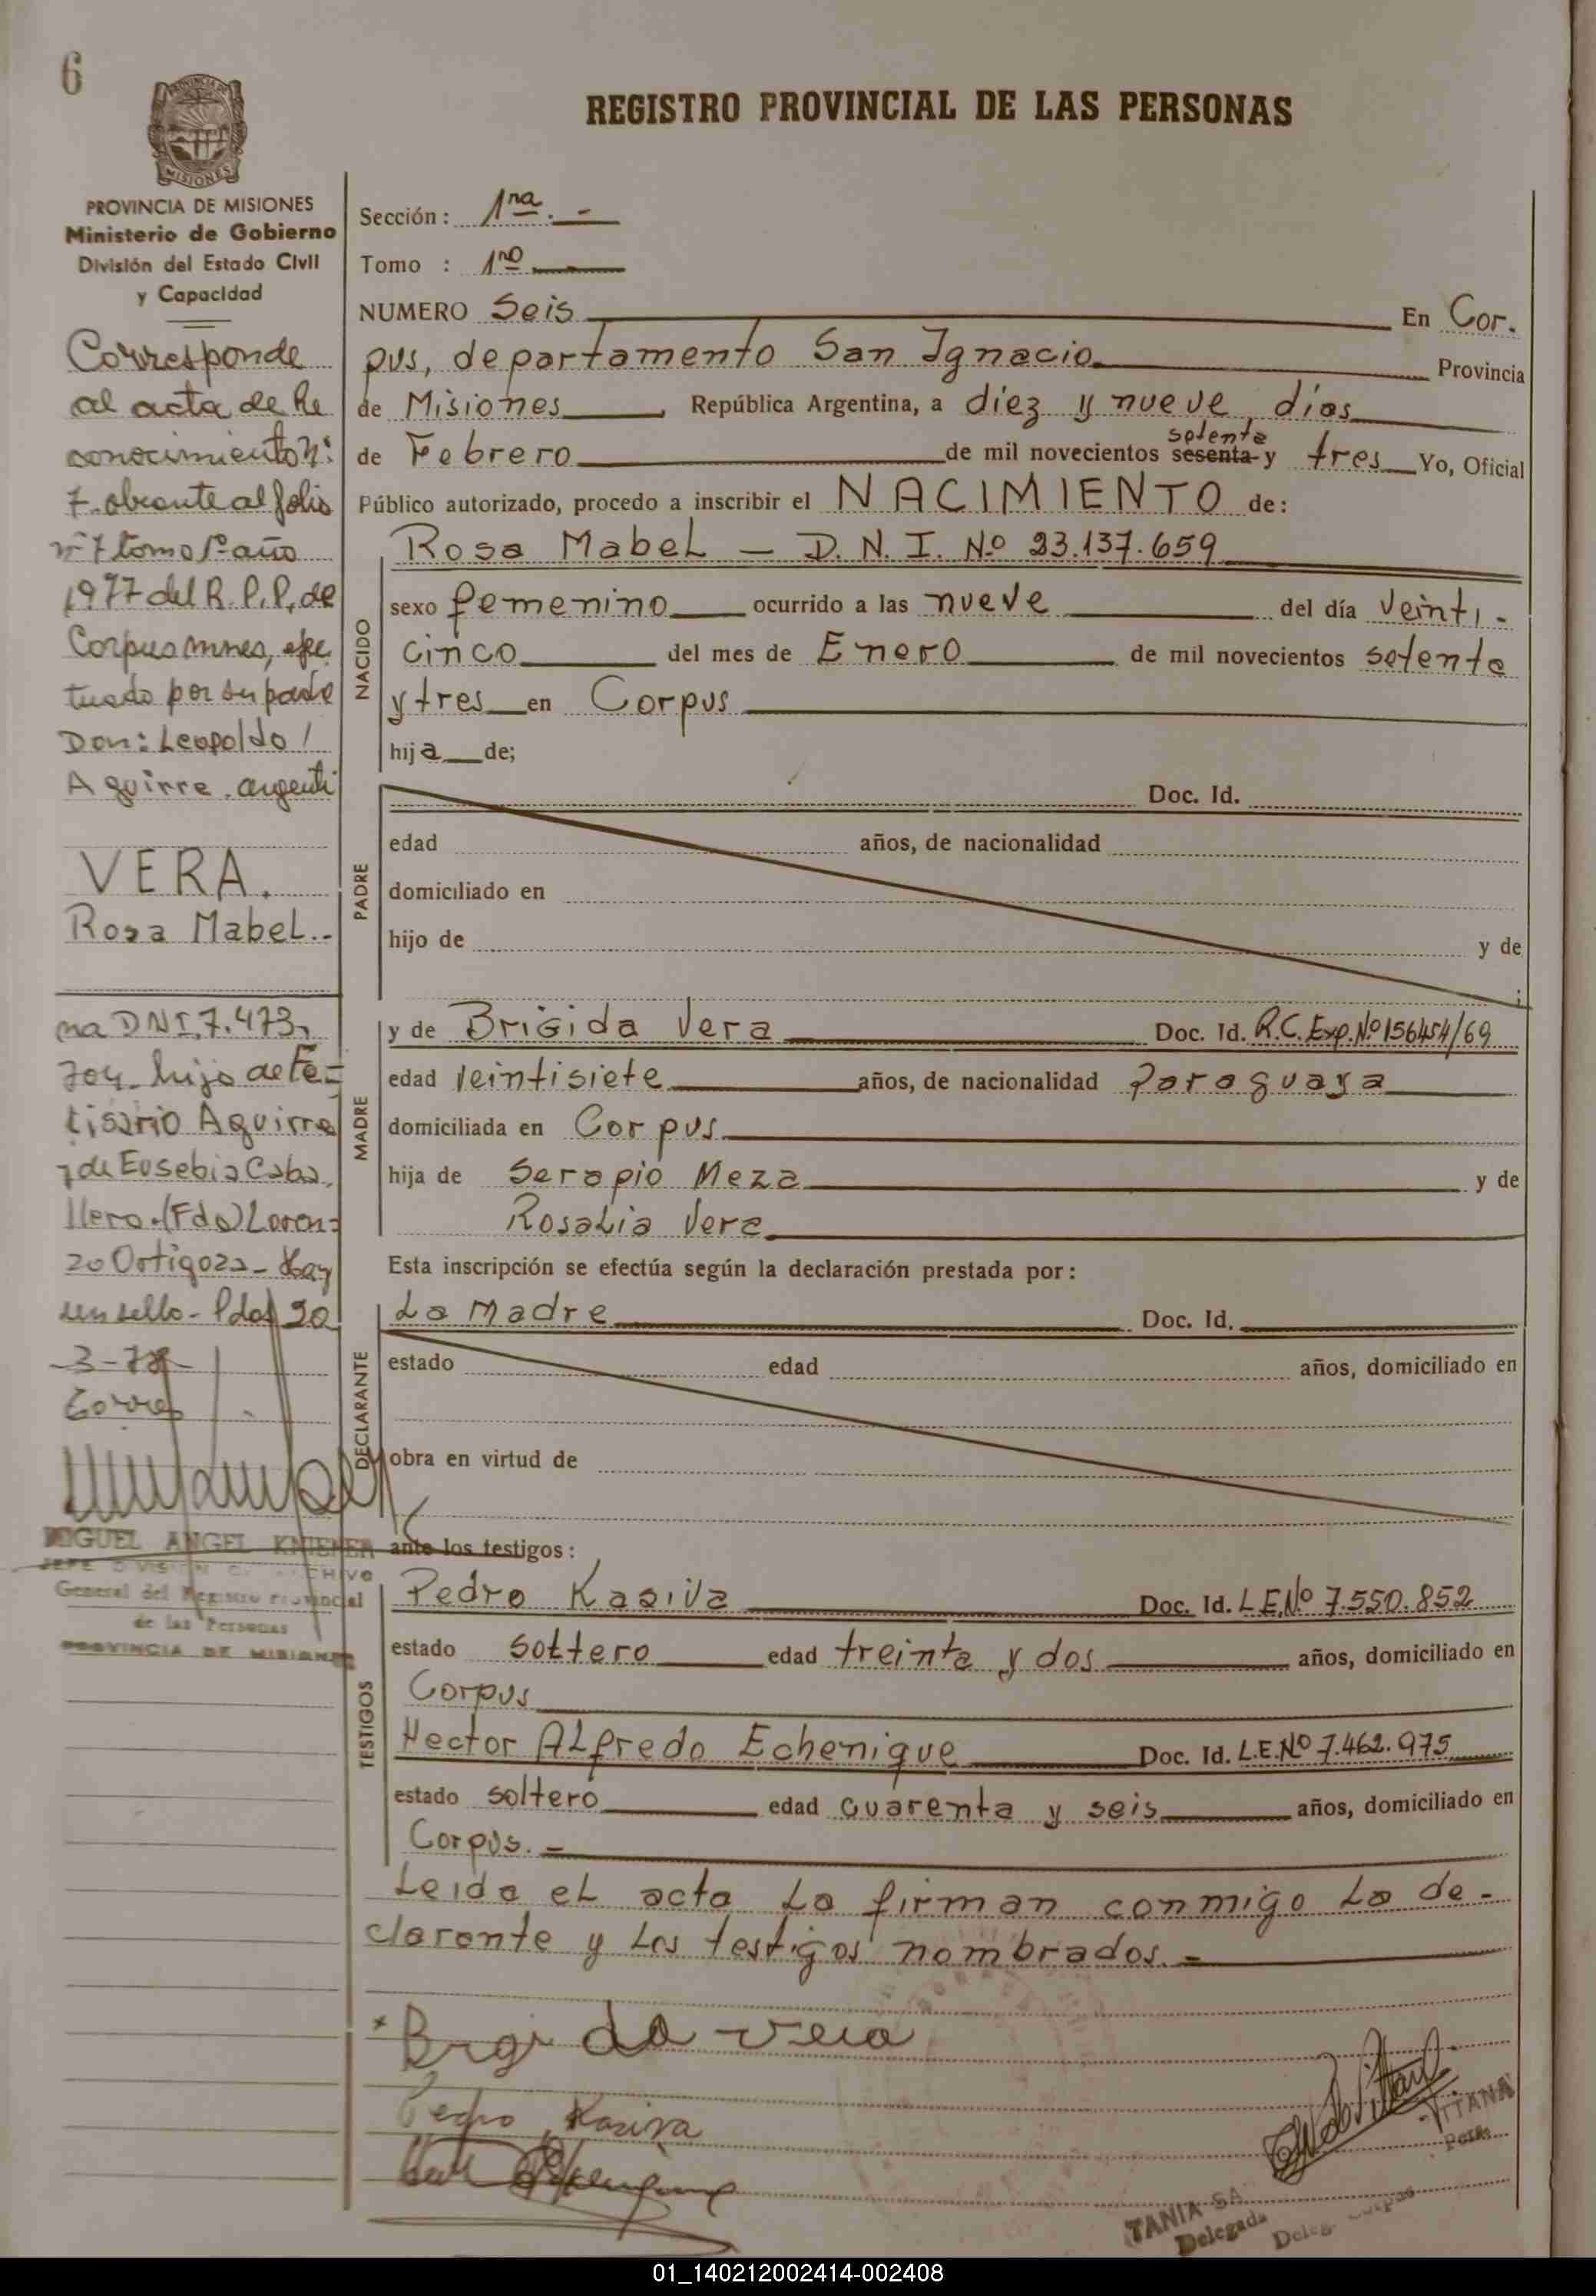 6
REGISTRO PROVINCIAL DE LAS PERSONAS
MISIONES
PROVINCIA DE MISIONES
Ministerio de Gobierno
División del Estado Civil
y Capacidad
Corresponde
al acta de Re
conocimiento nº
7. obrante al folio
nº 7 tomo 1º año
1977 del R. P. P. de
Corpus mnes, efec
tuado por su padre
Don: Leopoldo
Aguirre. argenti
VERA.
Rosa Mabel.-
na DNI.7.473.
704. hijo de Fe-
lisario Aguirre
y de Eusebia Caba
llero.(Fdo) Loren-
zo Ortigoza - Hay
un sello - Pdas 20
-3-78
MIGUEL ANGEL KNIENER
JEFE DIVISION ARCHIVO
General del Registro Provincial
de las Personas
PROVINCIA DE MISIONES
Sección: 1ra. -
Tomo : 1ro
NUMERO Seis En Cor.
pus, departamento San Ignacio Provincia
de Misiones, República Argentina, a diez y nueve dias
de Febrero de mil novecientos sesenta setenta y tres Yo, Oficial
Público autorizado, procedo a inscribir el NACIMIENTO de:
NACIDO
Rosa Mabel - D. N. I. Nº 23.137.659
sexo femenino ocurrido a las nueve del día Veinti-
cinco del mes de Enero de mil novecientos setenta
y tres en Corpus
hija de;
PADRE
Doc. Id.
edad años, de nacionalidad
domiciliado en
hijo de y de
MADRE
y de Brigida Vera Doc. Id. R.C. Exp. Nº 156454/69
edad Veintisiete años, de nacionalidad Paraguaya
domiciliada en Corpus
hija de Serapio Meza y de
Rosalia Vera
Esta inscripción se efectúa según la declaración prestada por:
DECLARANTE
La Madre Doc. Id.
estado edad años, domiciliado en
obra en virtud de
ante los testigos:
TESTIGOS
Pedro Kasiva Doc. Id. L.E.Nº 7.550.852
estado soltero edad treinta y dos años, domiciliado en
Corpus
Hector Alfredo Echenique Doc. Id. L.E.Nº 7.462.975
estado soltero edad cuarenta y seis años, domiciliado en
Corpus. -
Leida el acta la firman conmigo la de-
clarante y los testigos nombrados. -
Brgida vera
Pedro Kasiva
TANIA SA
Delegada
01_140212002414-002408